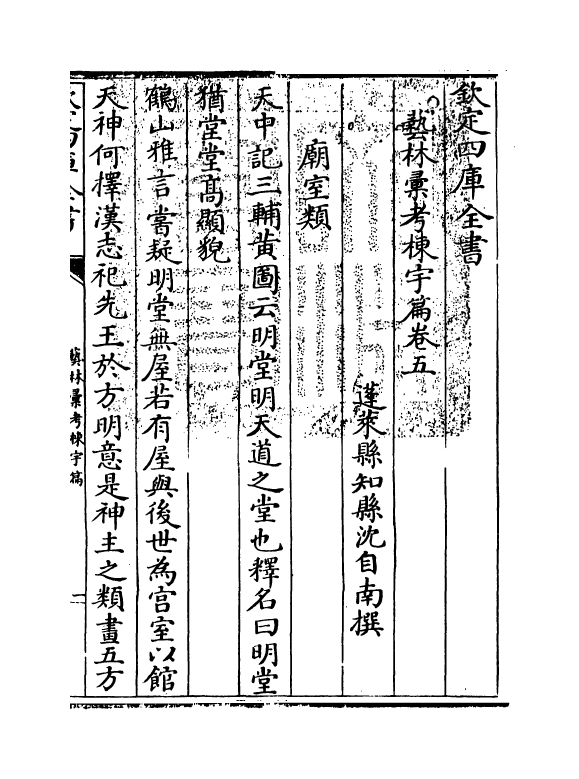 欽定四庫全書
藝林彙考棟宇篇卷五
蓬萊縣知縣沈自南撰
廟室類
天中記三輔黄圖云明堂明天道之堂也釋名曰明堂
猶堂堂髙顯貌
鶴山雅言嘗疑明堂無屋若有屋與後世為宫室以館
天神何擇漢志祀先王於方明意是神主之類畫五方
藝林彙考棟宇篇